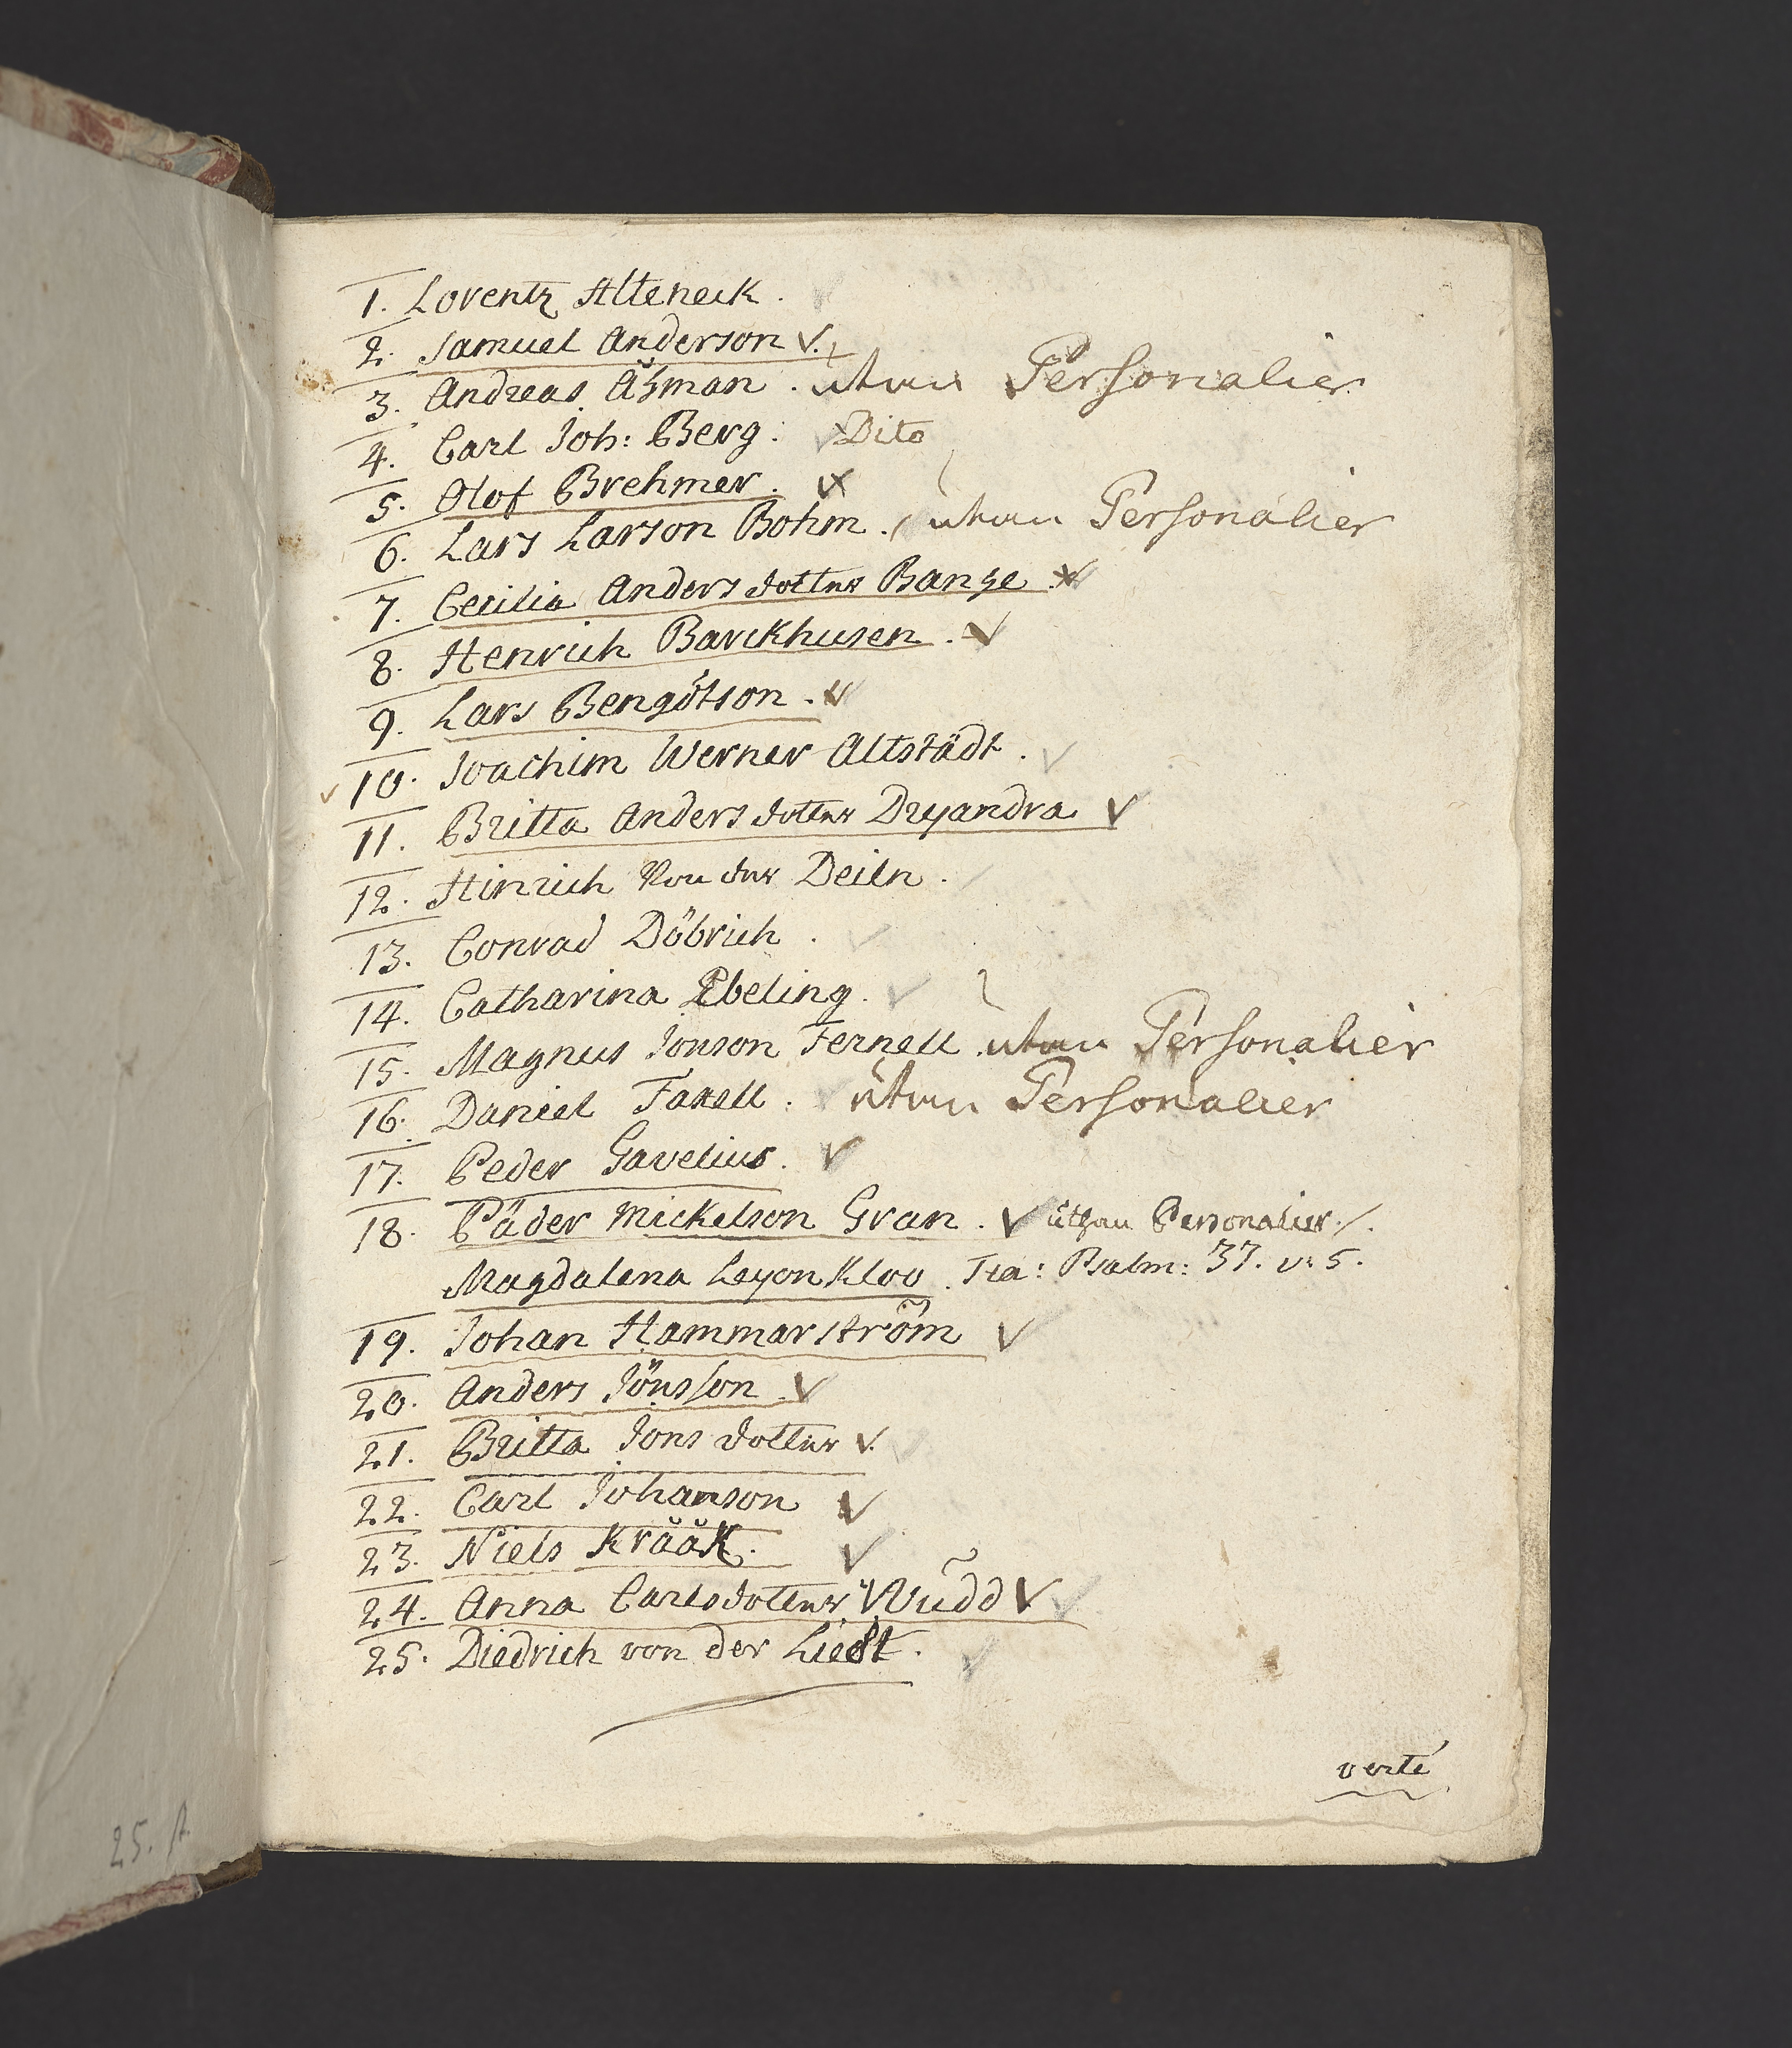 1. Lorentz Alteneck.
2. Samuel Anderson
3. Andreas Åhman. utan Personalier
4. Carl Joh: Berg. Dito
5. Olof Brehmer.
6. Lars Larson Bohm. utan Personalier
7. Cecilia Anders dotter Bange
8. Henrich Barckhusen.
9. Lars Bengtson.
10. Joachim Werner Altstädt.
11. Britta Anders dotter Dryandra
12. Hinrich Von der Deiln.
13. Conrad Döbrich.
14. Catharina Ebeling.
15. Magnus Jonson Fernell utan Personalier
16. Daniel Faxell. utan Personalier
17. Peder Gavelius.
18. Päder Mickelson Gran. uthan Personalier
Magdalena LeyonKloo. Tia: Psalm: 37. v: 5.
19. Johan Hammarström
20. Anders Jönsson
21. Britta Jons dotter
22. Carl Johanson
23. Niels Krååk.
24. Anna Carlsdotter Wudd
25. Diedrich von der Liedt.
verte
25.